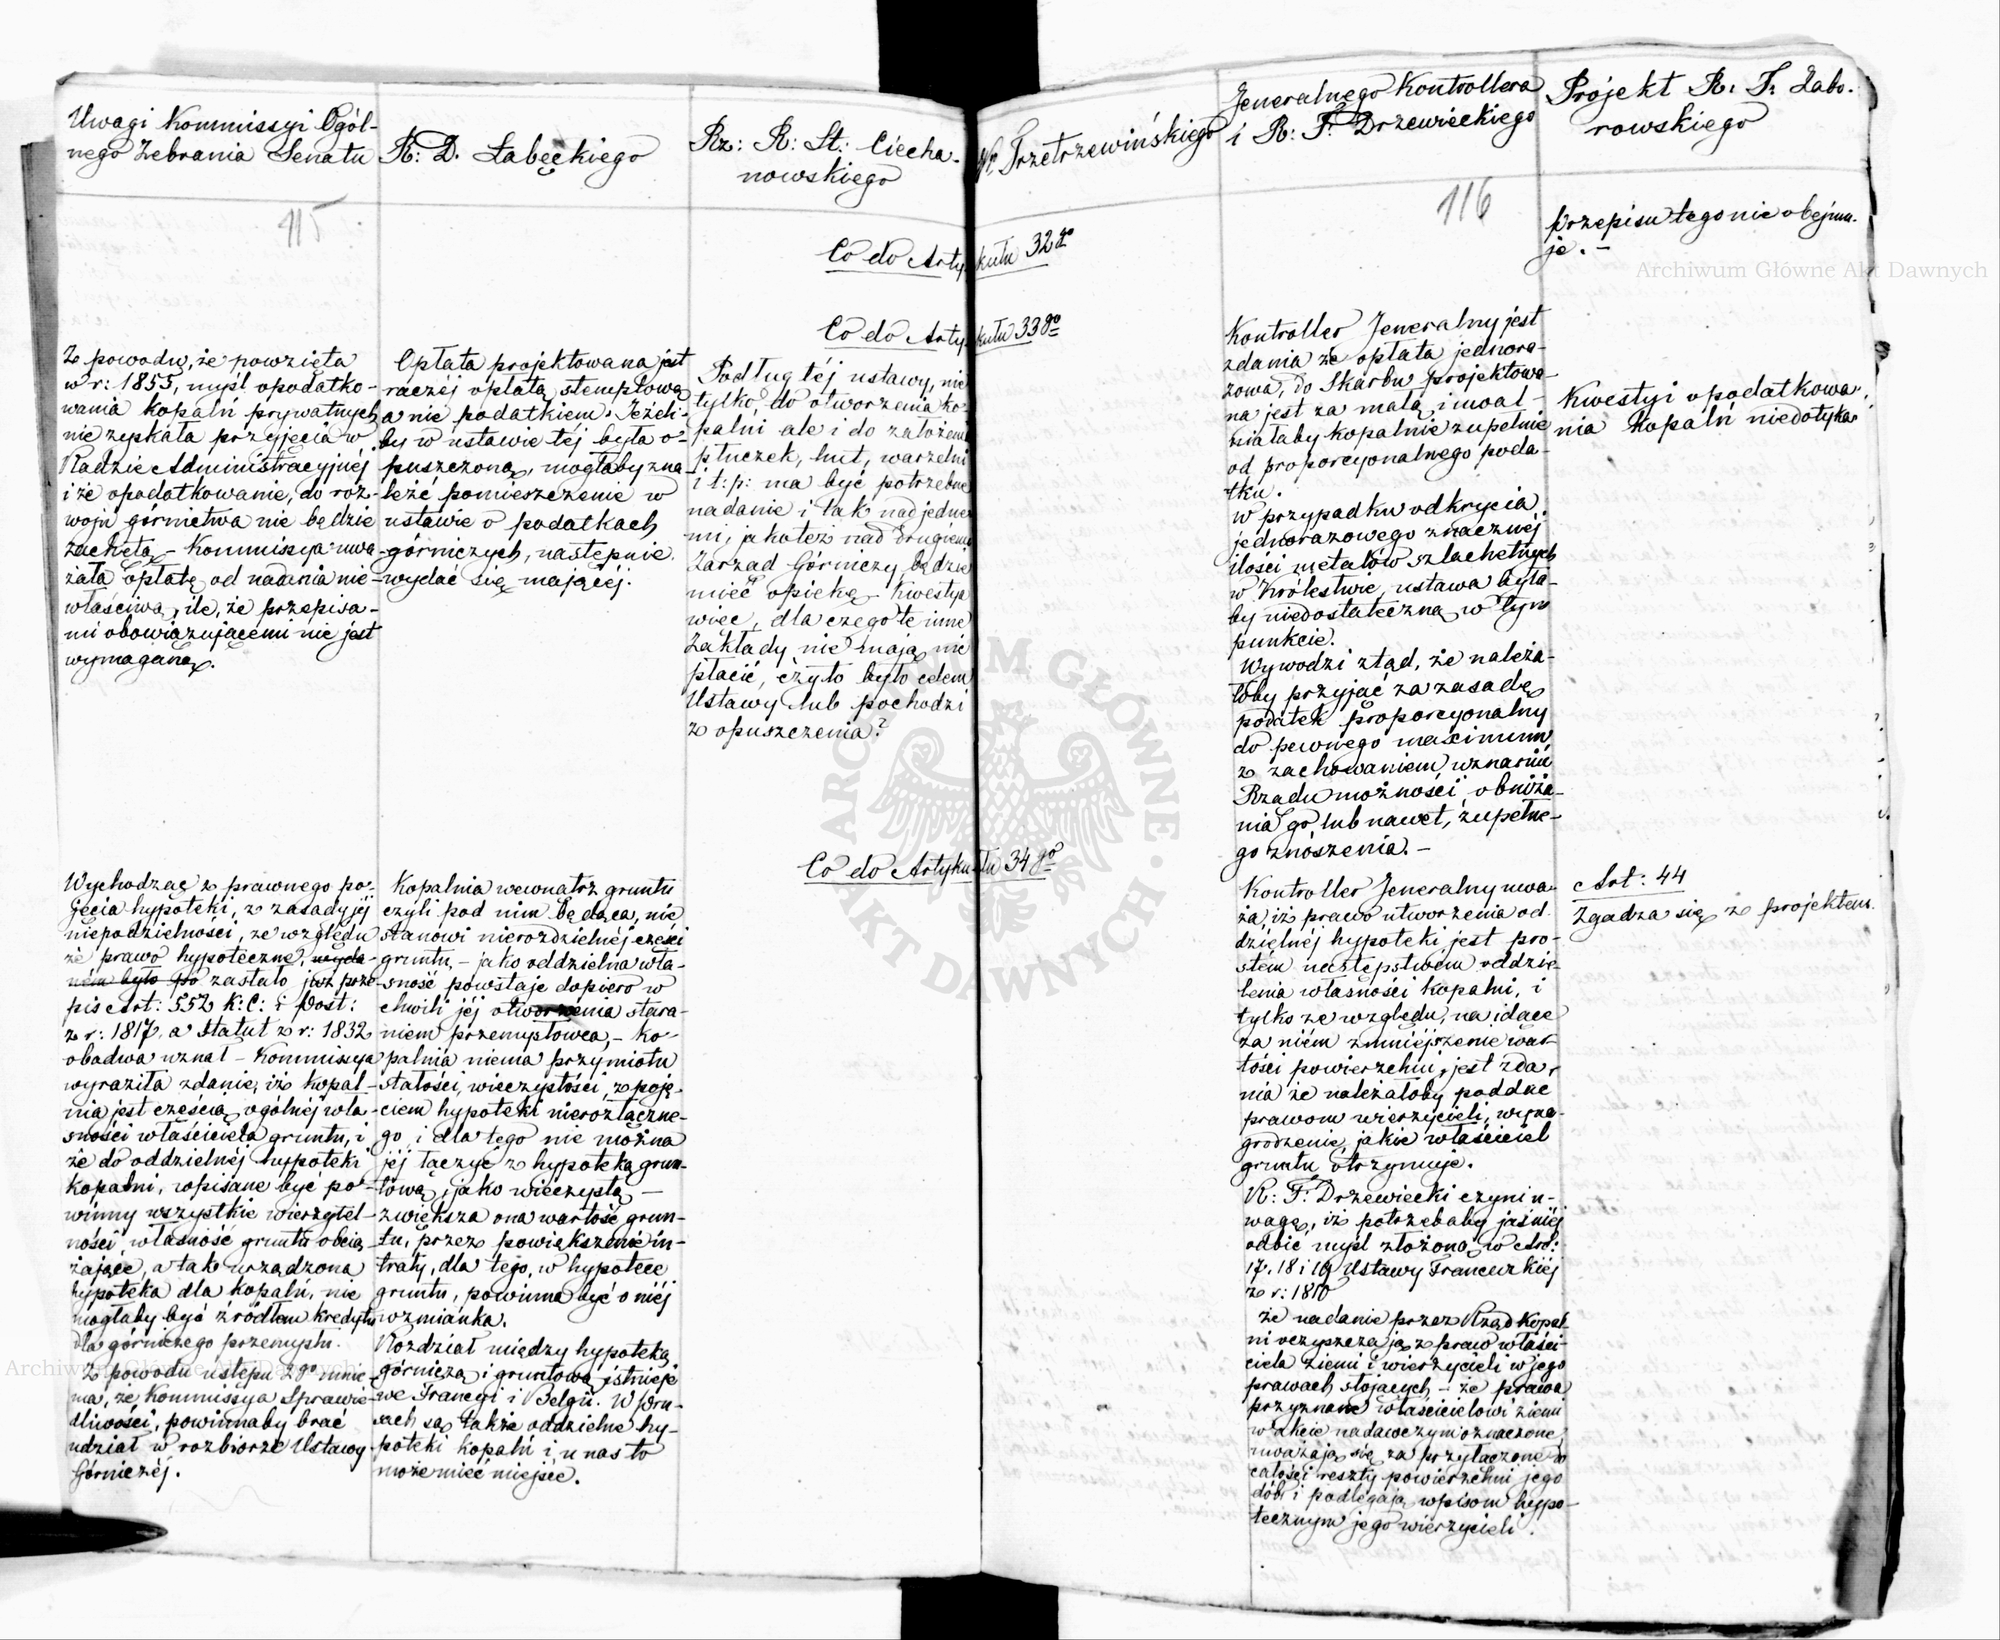 Uwagi Kommissyi Ogól-
nego Zebrania Senatu
R: D. Łabęckiego
Rz: R: St: Ciecha-
nowskiego
Przetrzewińskiego
Jeneralnego Kontrollera
i R: F: Drzewieckiego
Projekt R: F: Labo-
rowskiego
115
116
Co do Artykułu 32go
przepisu tego nie obejmu-
je. -
Co do Artykułu 33go
Z powodu, że powzięta
w r: 1853, myśl opodatko-
wania kopalń prywatnych
nie zyskała przyjęcia w
Radzie Administracyjnéj
i że opodatkowanie, do roz-
woju górnictwa nie będzie
zachętą - Kommissya uwa-
żała opłatę od nadania nie-
właściwą, ile, że przepisa-
mi obowiązującemi nie jest
wymaganą.
Opłata projektowana jest
raczéj opłatą stemplową
a nie podatkiem. Jeżeli-
by w ustawie téj była o-
puszczoną, mogłaby zna-
leźć pomieszczenie w
ustawie o podatkach
górniczych, następnie
wydać się mającéj.
Podług téj ustawy, nie
tylko, do otworzenia ko-
palni ale i do założenia
płuczek, hut, warzelni
i t: p: ma być potrzebne
nadanie i tak nad jedne-
mi, jakoteż nad drugiemi
Zarząd Górniczy będzie
mieć opiekę - Kwestya
więc, dla czego te inne
Zakłady nie mają nic
płacić, czy to było celem
Ustawy lub pochodzi
z opuszczenia?
Kontroller Jeneralny jest
zdania że opłata jednora-
zowa, do Skarbu projektowa-
na jest za małą i uwal-
niałaby kopalnie zupełnie
od proporcyonalnego poda-
tku.
W przypadku odkrycia
jednorazowego znacznéj
ilości metalów szlachetnych
w Królestwie, ustawa była-
by niedostateczną w tym
punkcie.
Wywodzi ztąd, że należa-
łoby przyjąć za zasadę
podatek proporcyonalny
do pewnego maximum
z zachowaniem, wznaniu
Rządu możności, obniża-
nia go, lub nawet, zupełne-
go znoszenia. -
Kwestyi opodatkowa-
nia kopalń niedotyka
Co do Artykułu 34go
Wychodząc z prawnego po-
jęcia hypoteki, z zasady jéj
niepodzielności, ze względu
że prawo hypoteczne, wyda-
ném było po zastało już prze-
pis Art: 552 K: C: i Post:
z r: 1817 a Statut z r: 1832
obadwa uznał - Kommissya
wyraziła zdanie, iż kopal-
nia jest częścią ogólnéj wła-
sności właściciela gruntu, i
że do oddzielnéj hypoteki
kopalni, wpisane być po-
winny wszystkie wierzytel-
ności, własność gruntu obcią-
żające, a tak urządzona
hypoteka dla kopalń, nie
mogłaby być źródłem kredytu
dla górniczego przemysłu.
Z powodu ustępu 2go mnie-
ma, że Kommissya Sprawie-
dliwości, powinnaby brać
udział w rozbiorze Ustawy
Górniczéj.
Kopalnia wewnątrz gruntu
czyli pod nim będąca, nie
stanowi nierozdzielnéj części
gruntu, - jako oddzielna wła-
sność powstaje dopiero w
chwili jéj otworzenia stara-
niem przemysłowca, - Ko-
palnia niema przymiotu
stałości, wieczystości, z poję-
ciem hypoteki nierozłączne-
go i dla tego nie można
jéj łączyć z hypoteką grun-
tową, jako wieczystą -
zwiększa ona wartość grun-
tu, przez powiększenie in-
traty, dla tego, w hypotece
gruntu, powinna być o niéj
wzmianka.
Rozdział między hypoteką
górniczą i gruntową istnieje
we Francyi i Belgii. W Pru-
sach są także oddzielne hy-
poteki kopalń i u nas to
może mieć miejsce.
Kontroller Jeneralny uwa-
ża, iż prawo utworzenia od-
dzielnéj hypoteki jest pro-
stém następstwem oddzie-
lenia własności kopalni, i
tylko ze względu, na idące
za niém zmniejszenie war-
tości powierzchni, jest zda-
nia że należałoby poddać
prawom wierzycieli, wyna-
grodzenie, jakie właściciel
gruntu otrzymuje.
R: F: Drzewiecki czyni u-
wagę, iż potrzebaby jaśniéj
odbić myśl złożoną w Art:
17, 18 i 19 Ustawy Francuzkiéj
z r: 1810
że nadanie przez Rząd kopal-
ni oczyszcza ją z praw właści-
ciela ziemi i wierzycieli w jego
prawach stojących, - że prawa
przyznane właścicielowi ziemi
w akcie nadawczym oznaczone,
uważają się za przyłączone do
całości reszty powierzchni jego
dóbr i podlegają wpisom hypo-
tecznym jego wierzycieli.
Art: 44
Zgadza się z projektem.
Archiwum Główne Akt Dawnych
Archiwum Główne Akt Dawnych
ARCHIWUM GŁÓWNE · AKT DAWNYCH ·